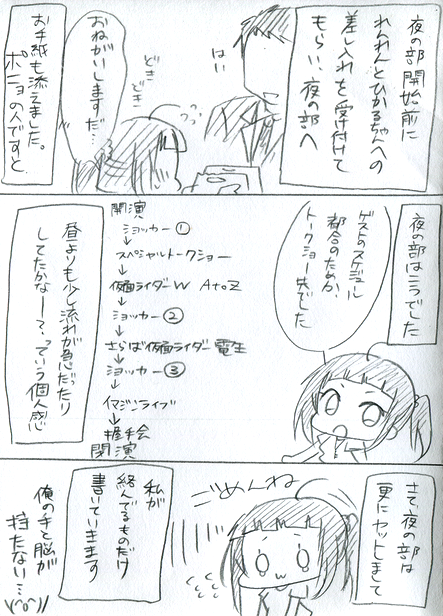 夜の部開始前に
れんれんとひかるちゃんへの
差し入れを受け付けて
もらい、夜の部へ
はい
どき
どき
おねがいしますだ…
お手紙も添えました。
ポニョの人ですと
夜の部はこうでした
ゲストのスケジュール
都合のためか、
トークショー先でした
開演
ショッカー①
↓
スペシャルトークショー
↓
仮面ライダーW AtoZ
↓
ショッカー②
↓
さらば仮面ライダー電王
↓
ショッカー③
↓
イマジンライブ
↓
握手会
閉演
昼よりも少し流れが急だったり
してたかなー?っていう個人感
さて夜の部は
更にカットしまして
ごめんね
私が
絡んでるものだけ
書いていきます
俺の手と脳が
持たない…
\(^o^)/